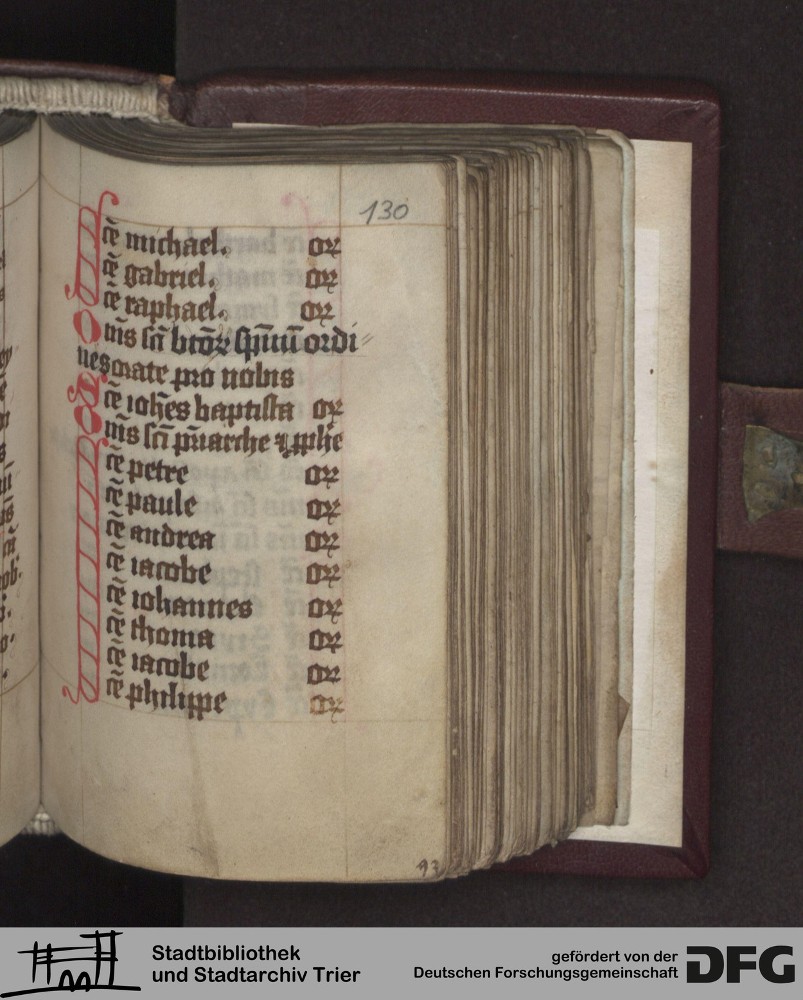 130
Sc̄e michael. or
c̄e gabriel. or
c̄e raphael. or
Om̄s sc̄i btōꝝ sp̄uū ordi
nes orate pro nobis
Sc̄e ioh̄es baptista or
Om̄s sc̄i p̄iarche ⁊ ꝓphe
Sc̄e petre or
c̄e paule or
c̄e andrea or
c̄e iacobe or
c̄e iohannes or
c̄e thoma or
c̄e iacobe or
c̄e philippe or
93
Stadtbibliothek
und Stadtarchiv Trier
gefördert von der
Deutschen Forschungsgemeinschaft
DFG